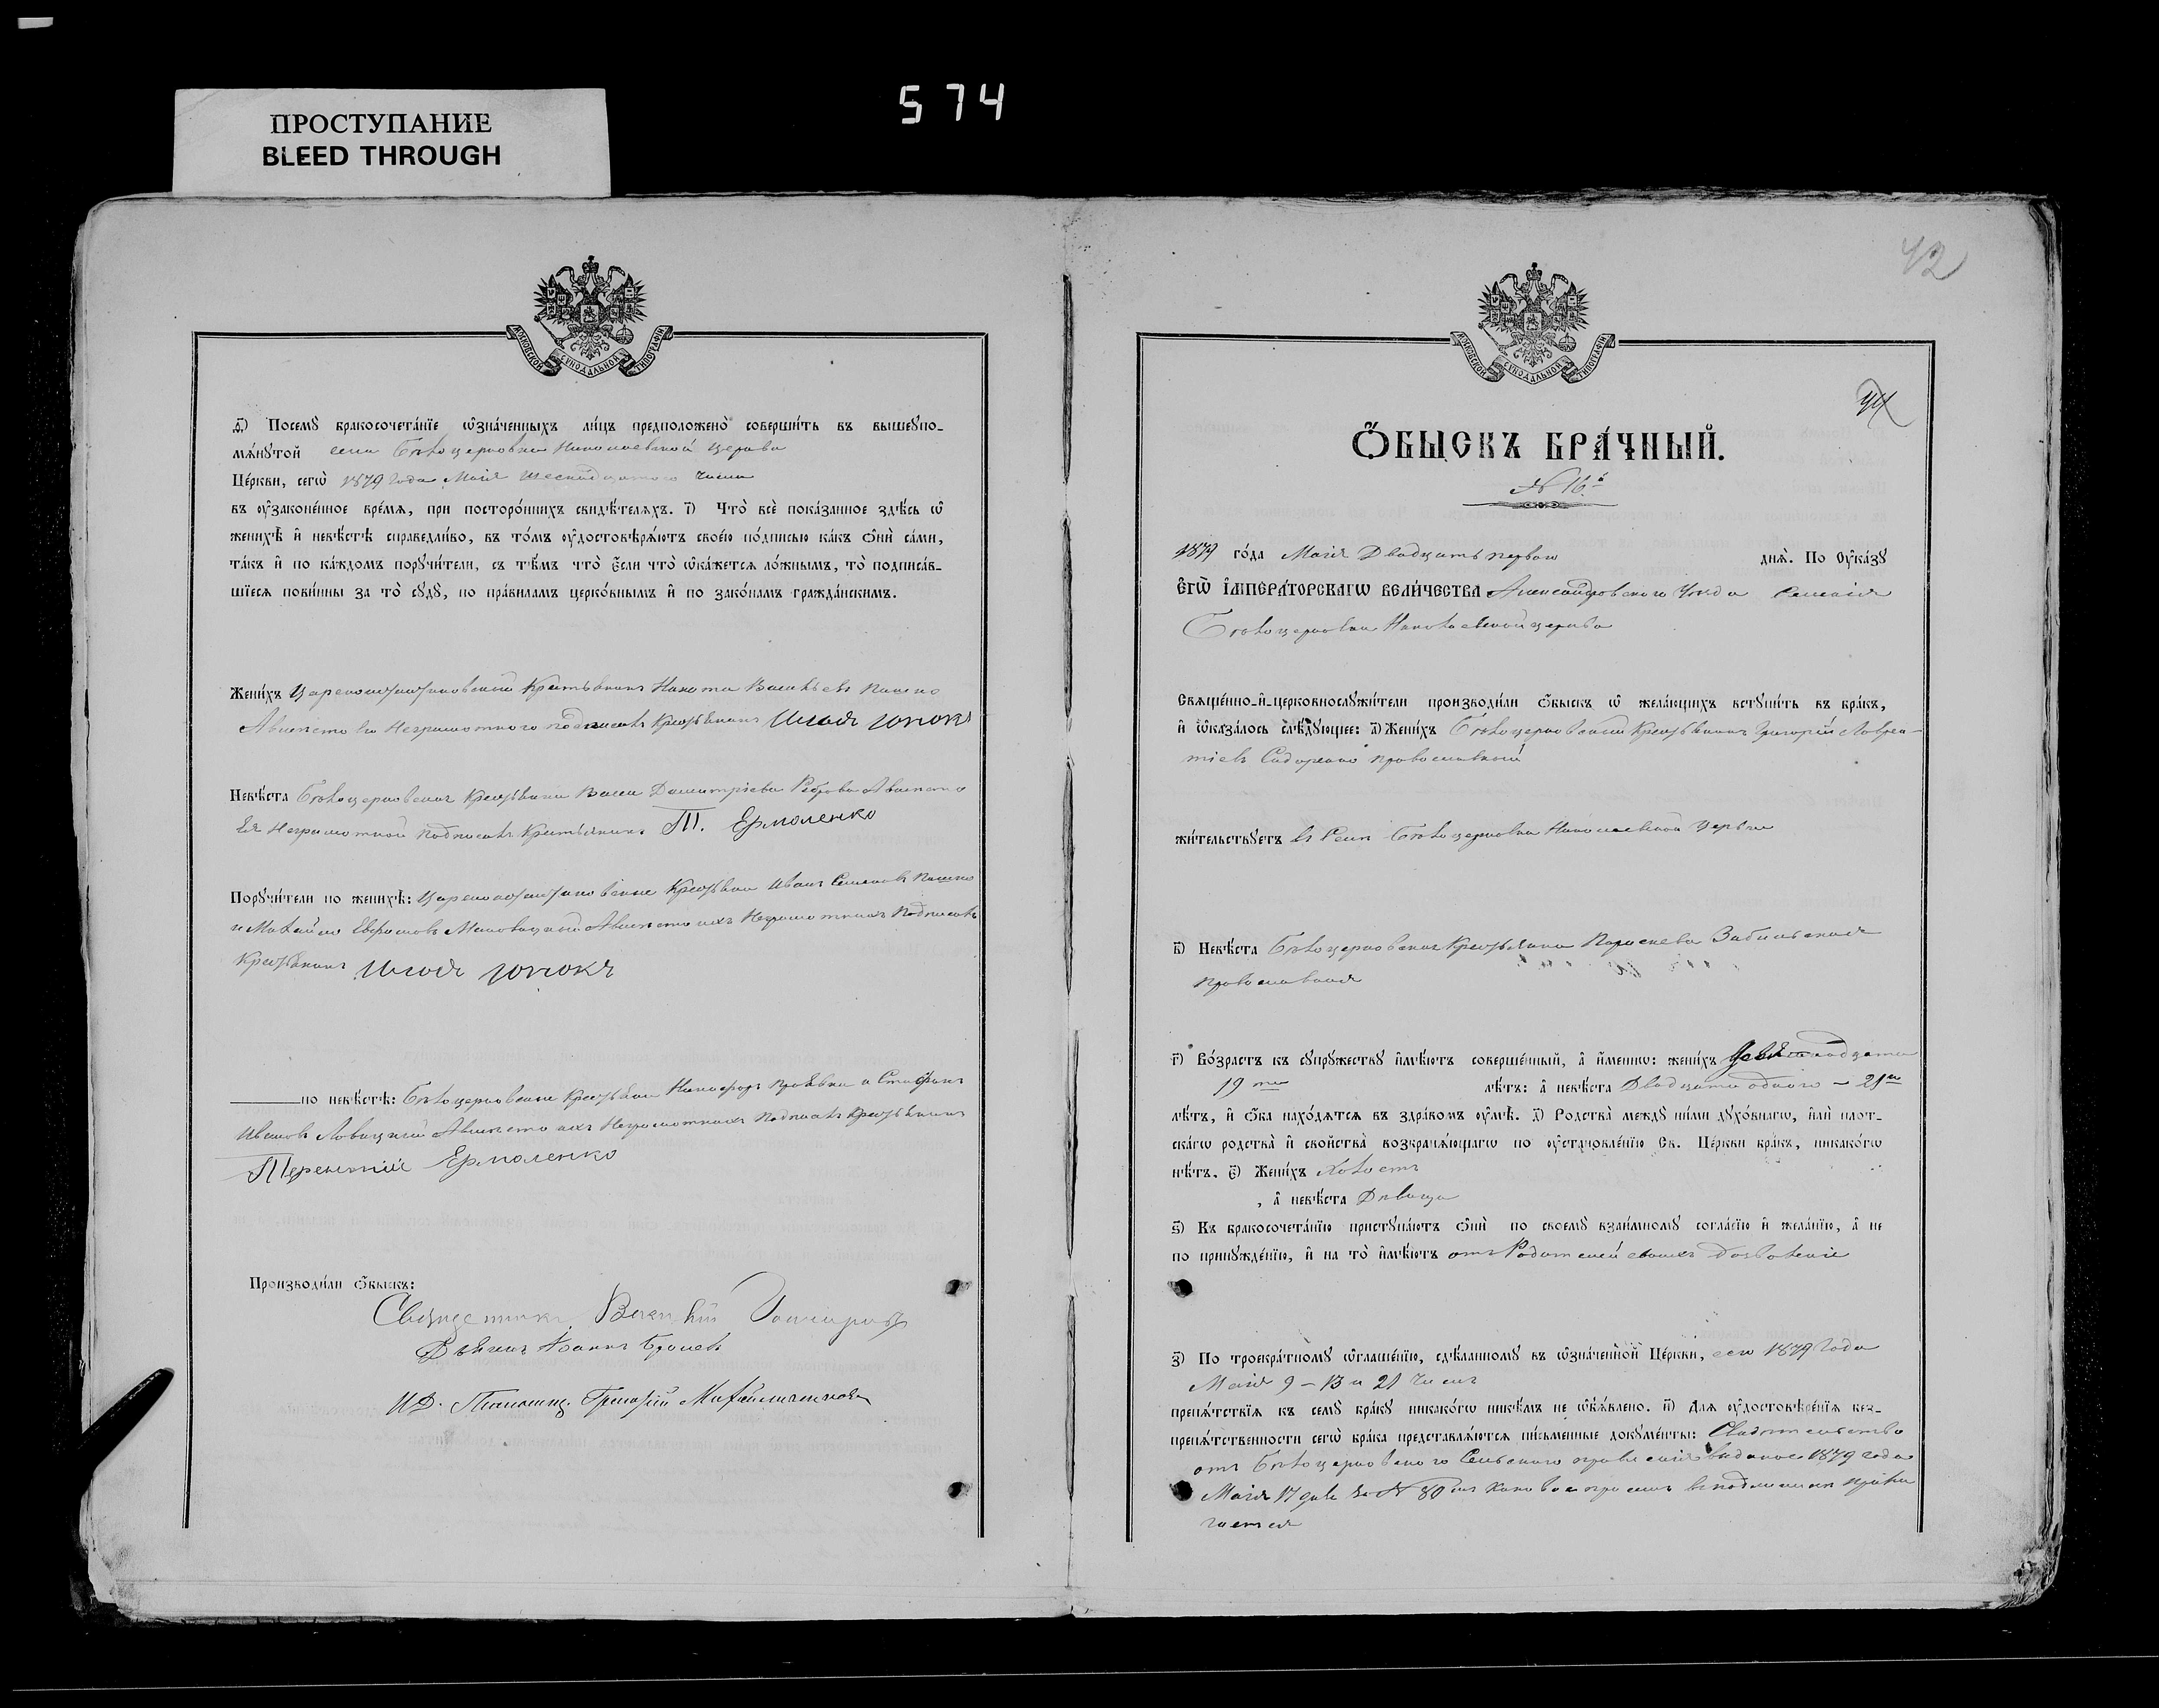 574
ПРОСТУПАНИЕ
BLEED THROUGH
МОСКОВСКОЙ СѴНОДАЛЬНОЙ ТИПОГРАФІИ
д҃) Посемꙋ̀ бракосочета́нїе ѡ҆зна́ченныхъ ли́цъ предположено̀ соверши́ть въ вышеꙋпо-
мѧ́нꙋтой села Бѣлоцерковки Николаевской церкви
Це́ркви, сегѡ̀ 1879 года Маія шеснадцатого числа
въ ᲂу҆законе́нное вре́мѧ, при посторо́ннихъ свидѣ́телѧхъ. і҃) Что̀ всѐ пока́занное здѣ́сь ѡ҆
женихѣ̀ и҆ невѣ́стѣ справедли́во, въ то́мъ ᲂу҆достовѣрѧ́ютъ свое́ю по́дписью ка́къ ѻ҆нѝ са́ми,
та́къ и҆ по ка́ждомъ порꙋчи́тели, съ тѣ́мъ что̀ є҆́сли что̀ ѡ҆ка́жетсѧ ло́жнымъ, то̀ подписа́в-
шїесѧ пови́нны за то̀ сꙋдꙋ̀, по пра́виламъ церко́внымъ и҆ по зако́намъ гражда́нскимъ.
Жени́хъ Цареконстантиновский Крестьянин Никита Васильев
А вместо его Неграмотного подписалъ Крестьянинъ Илья
Невѣ́ста Бѣлоцерковская Крестьянка Дамитріева А вместо
Ея Неграмотной подписалъ Крестьянинъ Т. Ермоленко
Порꙋчи́тели по женихѣ̀: Цареконстантиновские Крестьяне Иванъ Семеновъ
и Михайло А вместо ихъ Неграмотныхъ Подписалъ
Крестьянинъ Илья
по невѣ́стѣ: Бѣлоцерковские Крестьяне Никифоръ и Стефанъ
Ивановъ А вместо ихъ Неграмотныхъ Подписалъ Крестьянинъ
Терентий Ермоленко
Производи́ли ѻ҆́быскъ:
Священникъ Василий Гончаровъ
Дьяконъ Іоаннъ
И.Д. Псаломщ. Григорій
42
44
Ѻ҆́БЫСКЪ БРА́ЧНЫЙ.
№ 16й
1879 го́да Маія Двадцать первого днѧ̀. По Оу҆ка́зꙋ
Є҆ГѠ̀ І҆МПЕРА́ТОРСКАГѠ ВЕЛИ́ЧЕСТВА Александровского Уезда Селенія
Бѣлоцерковки Николаевской церкви
Свѧще́нно-и҆-церковнослꙋжи́тели производи́ли ѻ҆́быскъ ѡ҆ жела́ющихъ встꙋпи́ть въ бра́къ,
и҆ ѡ҆каза́лось слѣ́дꙋющее: а҃) Жени́хъ Бѣлоцерковский Крестьянинъ Григорій Лаврен-
тіевъ Сидоренко православный
жи́тельствꙋетъ въ Селѣ Бѣлоцерковки Николаевской Церкви
в҃) Невѣ́ста Бѣлоцерковская Крестьянка Параскева
православная
г҃) Во́зрастъ къ сꙋпрꙋ́жествꙋ и҆мѣ́ютъ соверше́нный, а҆ и҆́меннѡ: жени́хъ Девятнадцати
19 ти лѣ́тъ: а҆ невѣ́ста Двадцати одного – 21го
лѣ́тъ, и҆ ѻ҆́ба нахо́дѧтсѧ въ здра́вомъ ᲂу҆мѣ̀. д҃) Родства̀ междꙋ̀ ни́ми дꙋхо́внагѡ, и҆лѝ плот-
ска́гѡ родства̀ и҆ сво́йства̀ возбранѧ́ющагѡ по ᲂу҆становле́нїю Св. Це́ркви бра́къ, никако́гѡ
нѣ́тъ. є҃) Жени́хъ Холостъ
, а҆ невѣ́ста Дѣвица
ѕ҃) Къ бракосочета́нїю пристꙋпа́ютъ ѻ҆нѝ по своемꙋ̀ взаи́мномꙋ согла́сїю и҆ жела́нїю, а҆ не
по принꙋжде́нїю, и҆ на то̀ и҆мѣ́ютъ отъ Родителей своихъ Дозволеніе
з҃) По троекра́тномꙋ ѡ҆глаше́нїю, сдѣ́ланномꙋ въ ѡ҆зна́ченной Це́ркви, сего 1879 года
Маія 9 – 13 и 21 Числъ
препѧ́тствїѧ къ семꙋ̀ бра́кꙋ никако́гѡ никѣ́мъ не ѡ҆б̾ѧ́влено. и҃) Длѧ ᲂу҆достовѣре́нїѧ без-
препѧ́тственности сегѡ̀ бра́ка представлѧ́ютсѧ пи́сьменные докꙋме́нты: Свидѣтельство
отъ Бѣлоцерковского Сельского правленія виданое 1879 года
Маія 17 дня за № 80 въ подлинникѣ прила
гается